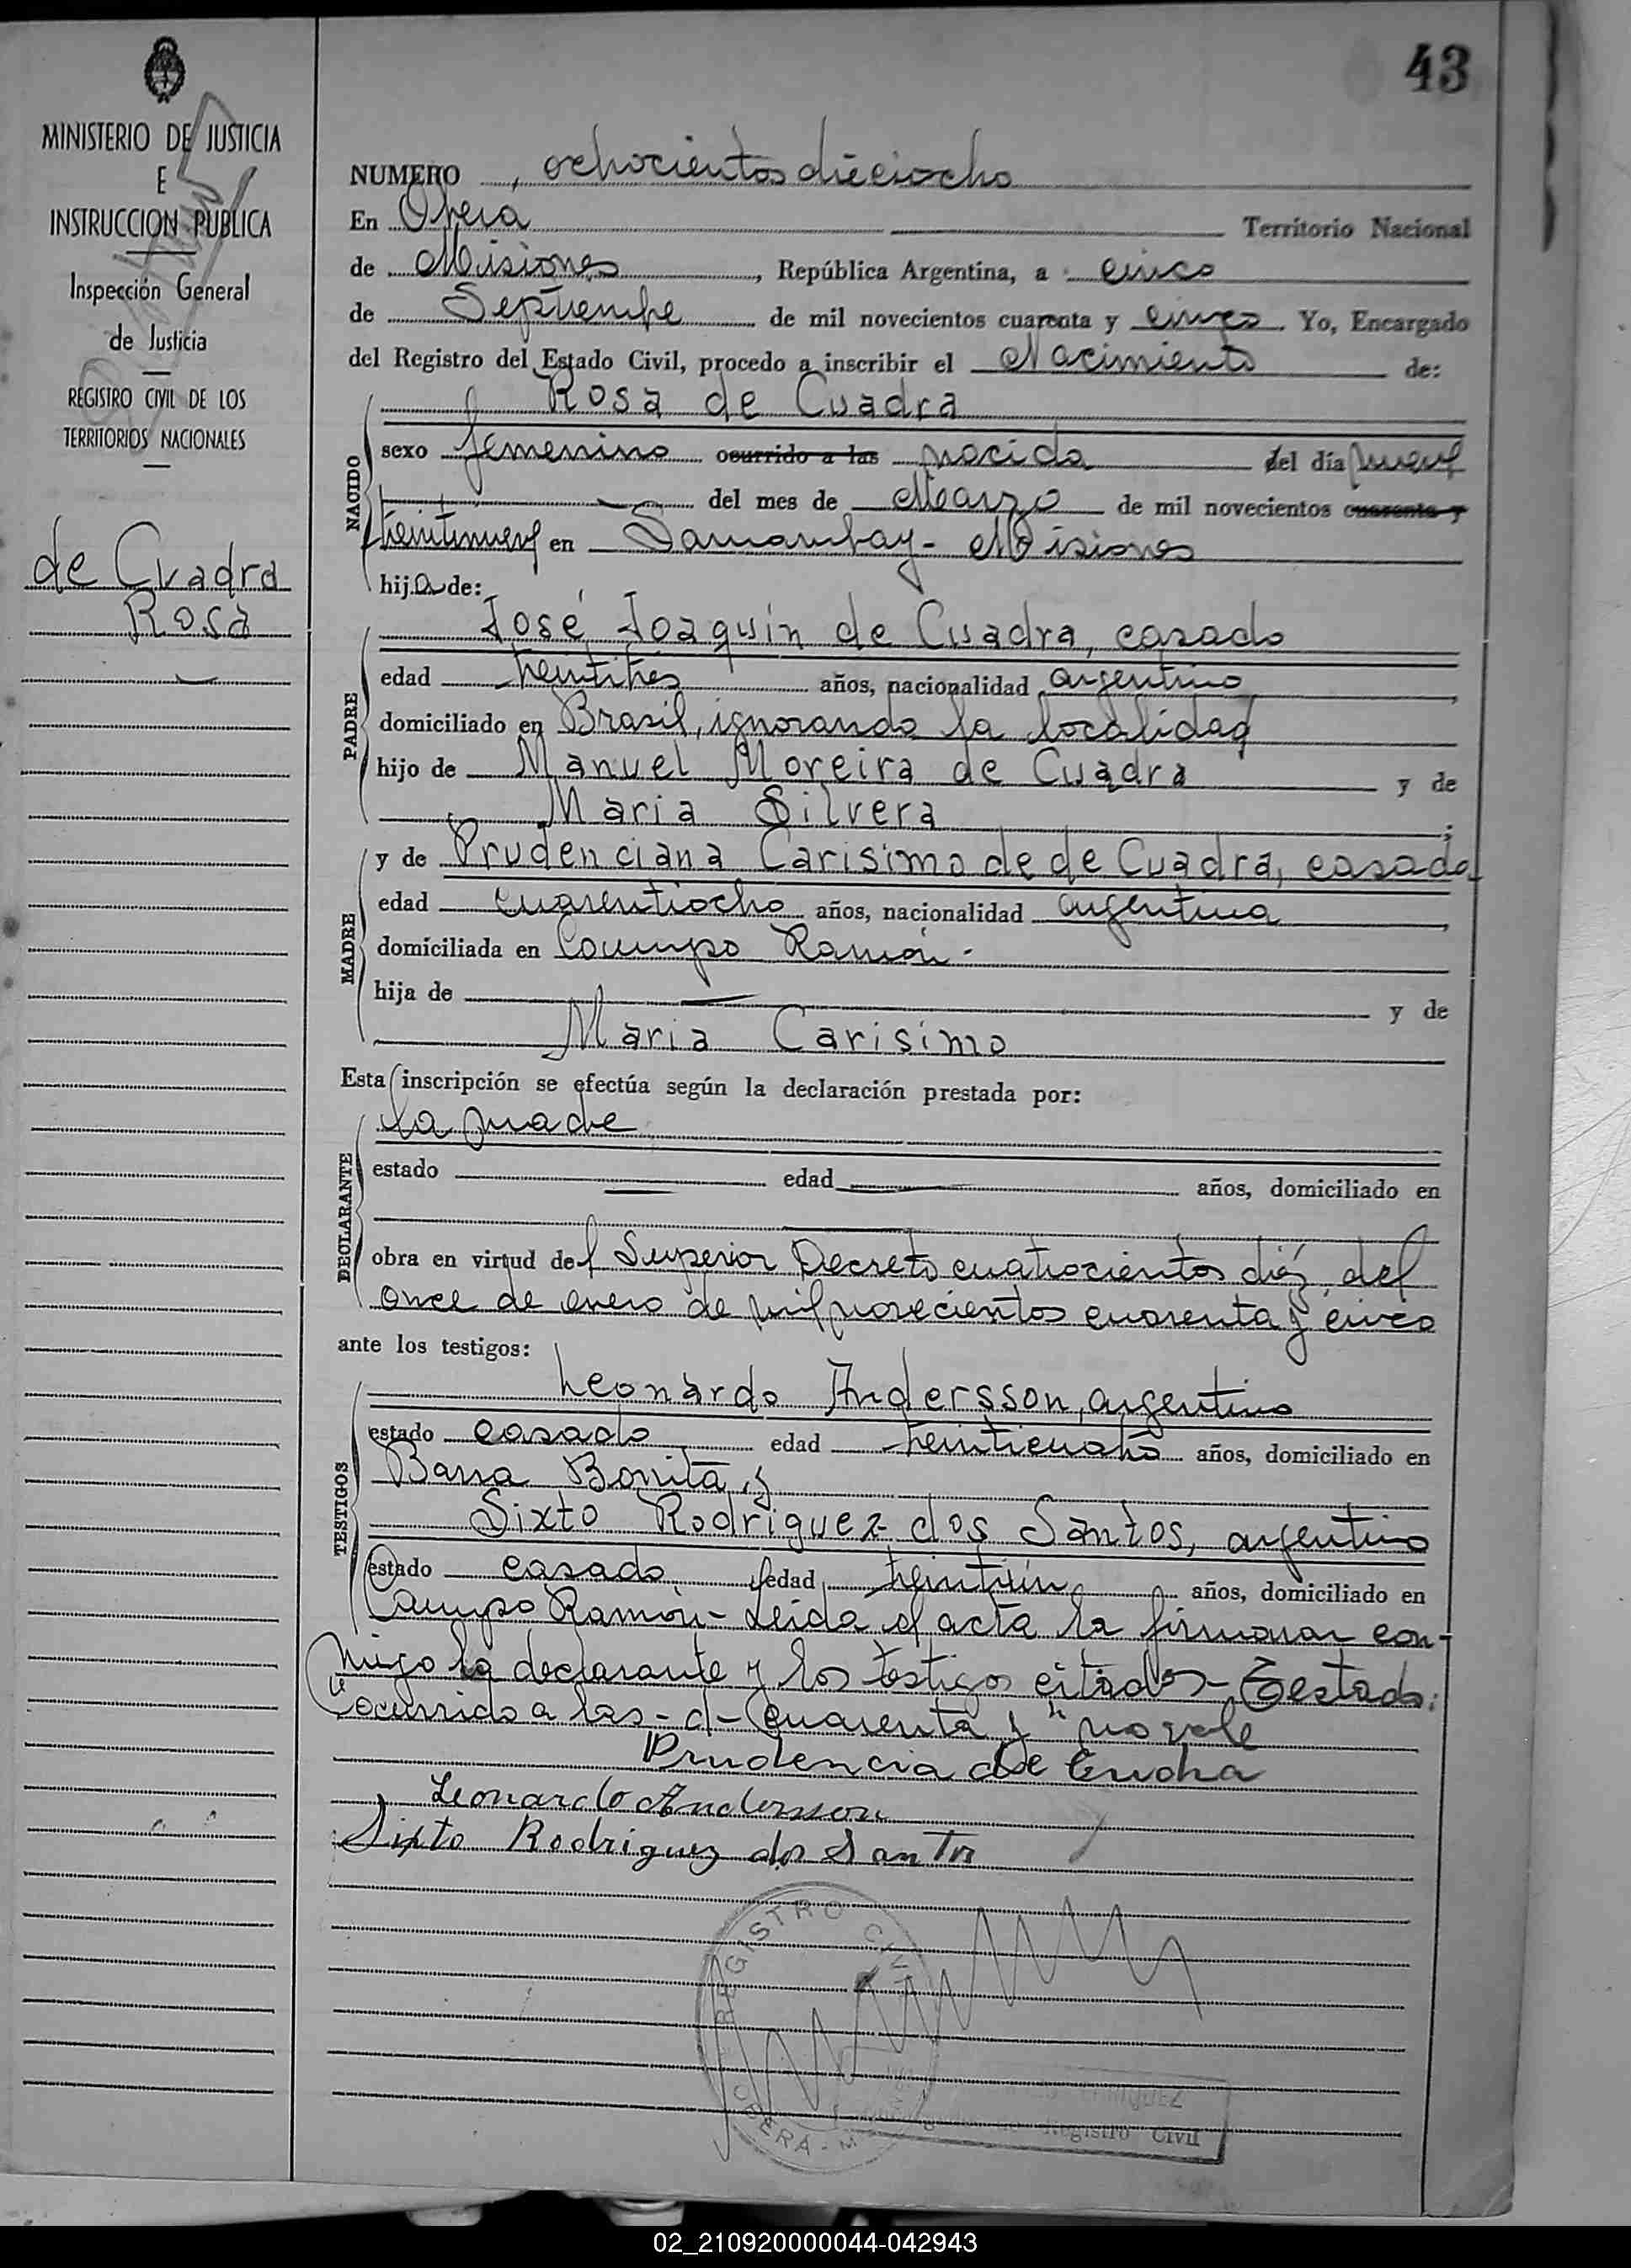 43
MINISTERIO DE JUSTICIA
E
INSTRUCCION PUBLICA
Inspección General
de Justicia
REGISTRO CIVIL DE LOS
TERRITORIOS NACIONALES
de Cuadra
Rosa
NUMERO ochocientos dieciocho
En Obera Territorio Nacional
de Misiones, República Argentina, a cinco
de Septiembre de mil novecientos cuarenta y cinco. Yo, Encargado
del Registro del Estado Civil, procedo a inscribir el Nacimiento de:
NACIDO
Rosa de Cuadra
sexo femenino ocurrido a las nacida del día nueve
del mes de Marzo de mil novecientos cuarenta y
treintinueve en Samambay - Misiones
hija de:
PADRE
José Joaquín de Cuadra, casado
edad treintitrés años, nacionalidad argentino,
domiciliado en Brasil, ignorando la localidad
hijo de Manuel Moreira de Cuadra y de
Maria Silvera;
MADRE
y de Prudenciana Carisimo de de Cuadra, casada
edad cuarentiocho años, nacionalidad argentina,
domiciliada en Campo Ramón -
hija de — y de
Maria Carisimo
Esta inscripción se efectúa según la declaración prestada por:
DECLARANTE
la madre
estado — edad — años, domiciliado en
obra en virtud del Superior Decreto cuatrocientos diéz, del
once de enero de mil novecientos cuarenta y cinco
ante los testigos:
TESTIGOS
Leonardo Andersson, argentino
estado casado edad treinticuatro años, domiciliado en
Barra Bonita, y
Sixto Rodriguez dos Santos, argentino
estado casado, edad treintiún años, domiciliado en
Campo Ramón - Leida el acta la firmaron con-
migo la declarante y los testigos citados - Testado:
"ocurrido a las - d - cuarenta y" no vale
Prudencia de
Leonardo Andersson
Sixto Rodriguez dos Santos
REGISTRO CIVIL
OBERA - M
Registro Civil
02_210920000044-042943